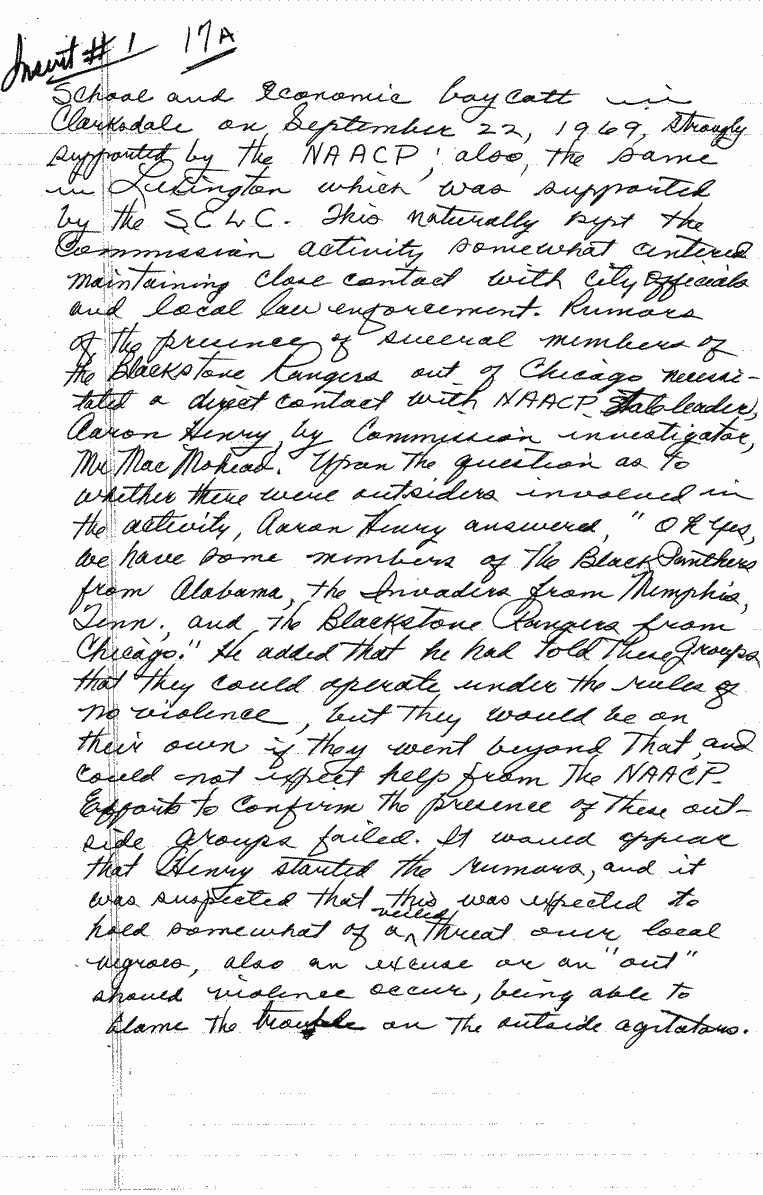 Insert # 1 17A
School and economic boycott in
Clarksdale on September 22, 1969, strongly
supported by the NAACP; also, the same
in Lexington which was supported
by the SCLC. This naturally kept the
Commission activity somewhat centered
maintaining close contact with city officials
and local law enforcement. Rumors
of the presence of several members of
the Blackstone Rangers out of Chicago necessi-
tated a direct contact with NAACP State leader,
Aaron Henry, by Commission investigator,
Mr Mac Mohead. Upon the question as to
whether there were outsiders involved in
the activity, Aaron Henry answered, "Oh Yes,
we have some members of the Black Panthers
from Alabama, the Invaders from Memphis,
Tenn., and the Blackstone Rangers from
Chicago." He added that he had told these groups
that they could operate under the rules of
no violence, but they would be on
their own if they went beyond that, and
could not expect help from the NAACP.
Efforts to confirm the presence of these out-
side groups failed. It would appear
that Henry started the rumors, and it
was suspected that this was expected to
hold somewhat of a veiled threat over local
negroes, also an excuse or an "out"
should violence occur, being able to
blame the trouble on the outside agitators.